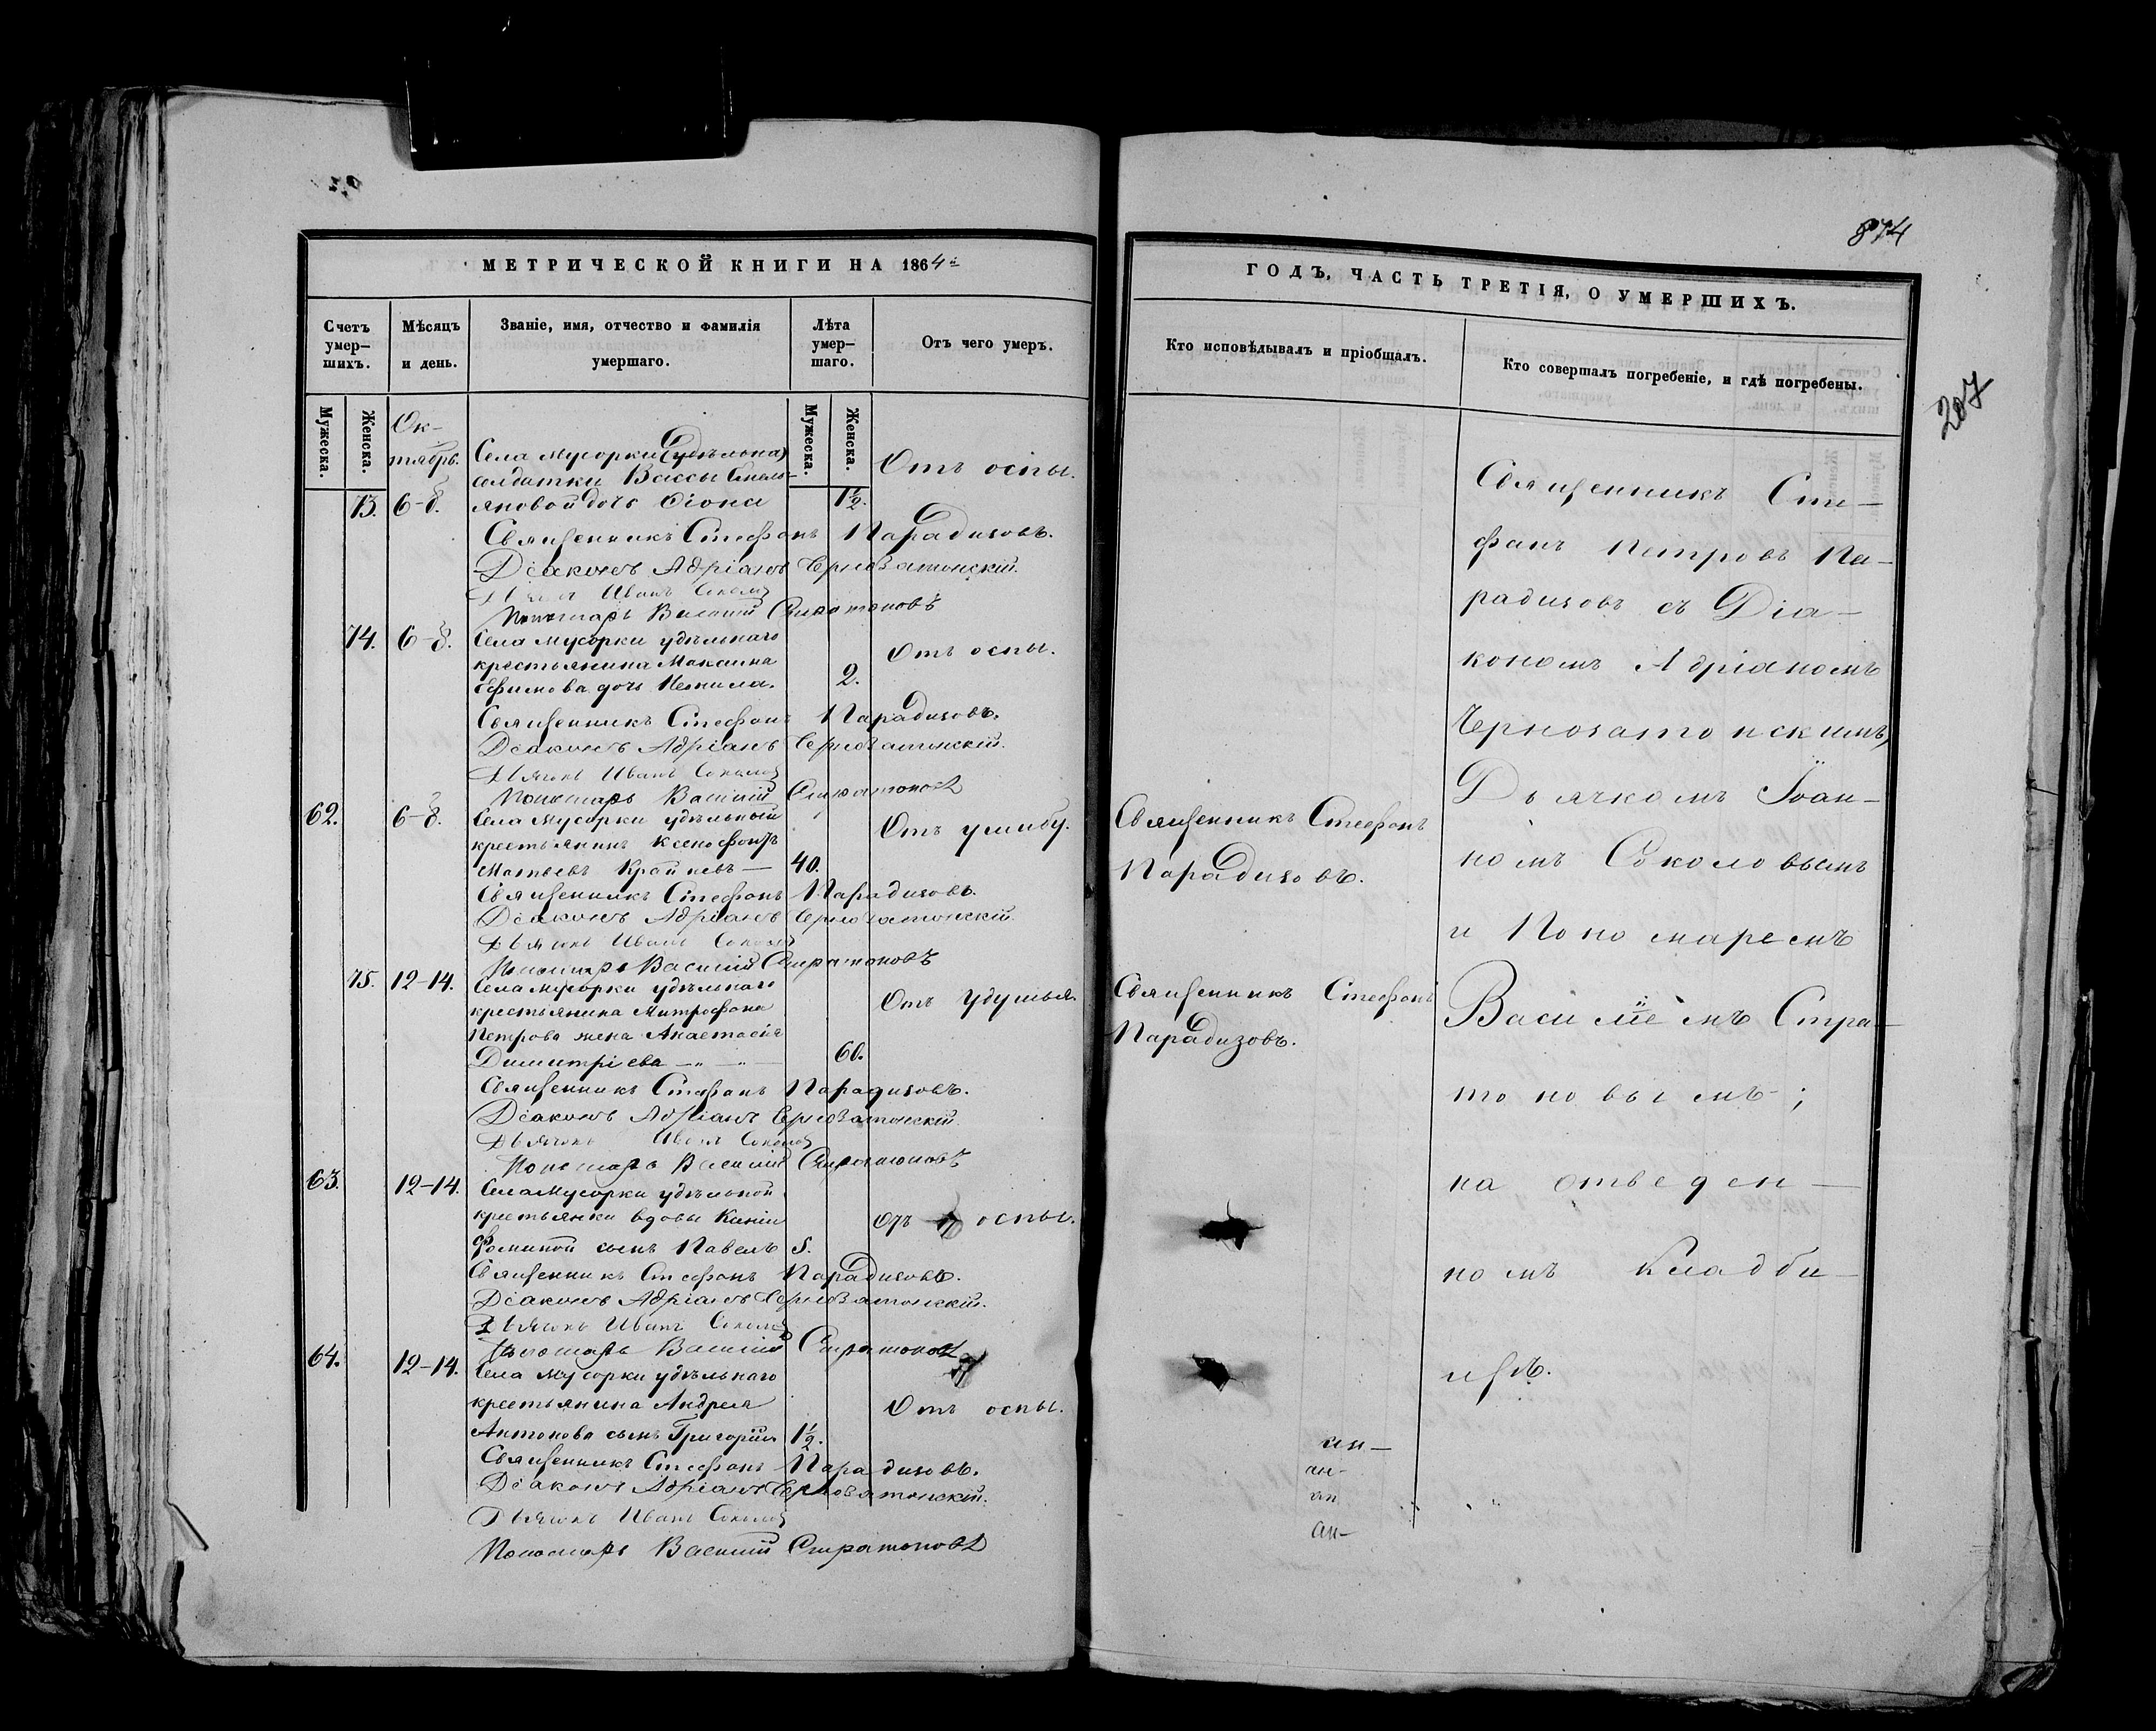 МЕТРИЧЕСКОЙ КНИГИ НА 1864й
Счетъ умер-шихъ.
Мѣсяцъ и день.
Званіе, имя, отчество и фамилія умершаго.
Лѣта умер-шаго.
Отъ чего умеръ.
Мужеска.
Женска.
Мужеска.
Женска.
Ок-
тябрь.
Села Мусорки
солдатки Вассы
73. 6-8. яновой дочь 1½. Отъ оспы.
Священникъ Стефанъ Парадизовъ.
Діаконъ Адріанъ Чернозатонскій.
Дьячокъ Иванъ Соколовъ
Пономарь Василій Стратоновъ
74. 6-8. Села Мусорки удѣльнаго
крестьянина Максима Отъ оспы.
Ефимова дочь 2.
Священникъ Стефанъ Парадизовъ.
Діаконъ Адріанъ Чернозатонскій.
Дьячокъ Иванъ Соколовъ
Пономарь Василій Стратоновъ
62. 6-8. Села Мусорки удѣльный
крестьянинъ Ксенофонтъ Отъ ушибу.
Матвеевъ Крайневъ — 40.
Священникъ Стефанъ Парадизовъ.
Діаконъ Адріанъ Чернозатонскій.
Дьячокъ Иванъ Соколовъ
Пономарь Василій Стратоновъ
75. 12-14. Села Мусорки удѣльнаго
крестьянина Митрофана Отъ удушья.
Петрова жена Анастасія
Димитріева 60.
Священникъ Стефанъ Парадизовъ.
Діаконъ Адріанъ Чернозатонскій.
Дьячокъ Иванъ Соколовъ
Пономарь Василій Стратоновъ
63. 12-14. Села Мусорки удѣльной
крестьянки вдовы Ксеніи Отъ оспы.
Фоминой сынъ Павелъ 5.
Священникъ Стефанъ Парадизовъ.
Діаконъ Адріанъ Чернозатонскій.
Дьячокъ Иванъ Соколовъ
Пономарь Василій Стратоновъ
64. 12-14. Села Мусорки удѣльнаго
крестьянина Андрея Отъ оспы.
Антонова сынъ Григорій 1½.
Священникъ Стефанъ Парадизовъ.
Діаконъ Адріанъ Чернозатонскій.
Дьячокъ Иванъ Соколовъ
Пономарь Василій Стратоновъ
874
ГОДЪ, ЧАСТЬ ТРЕТІЯ, О УМЕРШИХЪ.
Кто исповѣдывалъ и пріобщалъ.
Кто совершалъ погребеніе, и гдѣ погребены.
207
Священникъ Стефанъ
Парадизовъ.
Священникъ Стефанъ
Парадизовъ.
Священникъ Сте-
фанъ Петровъ Па-
радизовъ съ Діа-
кономъ Адріаномъ
Чернозатонскимъ,
Дьячкомъ Іоан-
номъ Соколовымъ
и Пономаремъ
Василіемъ Стра-
тоновымъ;
на отведен-
номъ кладби-
щѣ.